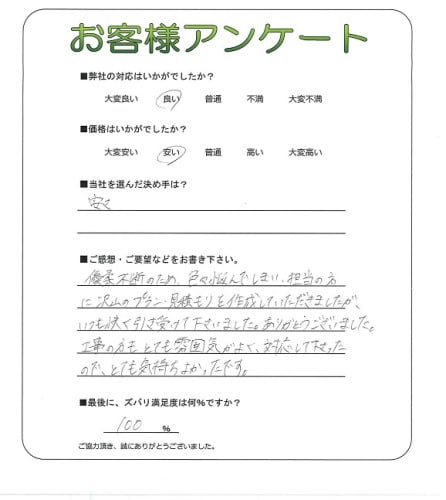 お客様アンケート
■弊社の対応はいかがでしたか?
大変良い 良い 普通 不満 大変不満
■価格はいかがでしたか?
大変安い 安い 普通 高い 大変高い
■当社を選んだ決め手は?
安さ
■ご感想・ご要望などをお書き下さい。
優柔不断のため、色々悩んでしまい、担当の方
に沢山のプラン・見積もりを作成していただきましたが、
いつも快く引き受けて下さいました。ありがとうございました。
工事の方も とても雰囲気がよく、対応して下さった
ので、とても気持ちよかったです。
■最後に、ズバリ満足度は何%ですか?
100 %
ご協力頂き、誠にありがとうございました。